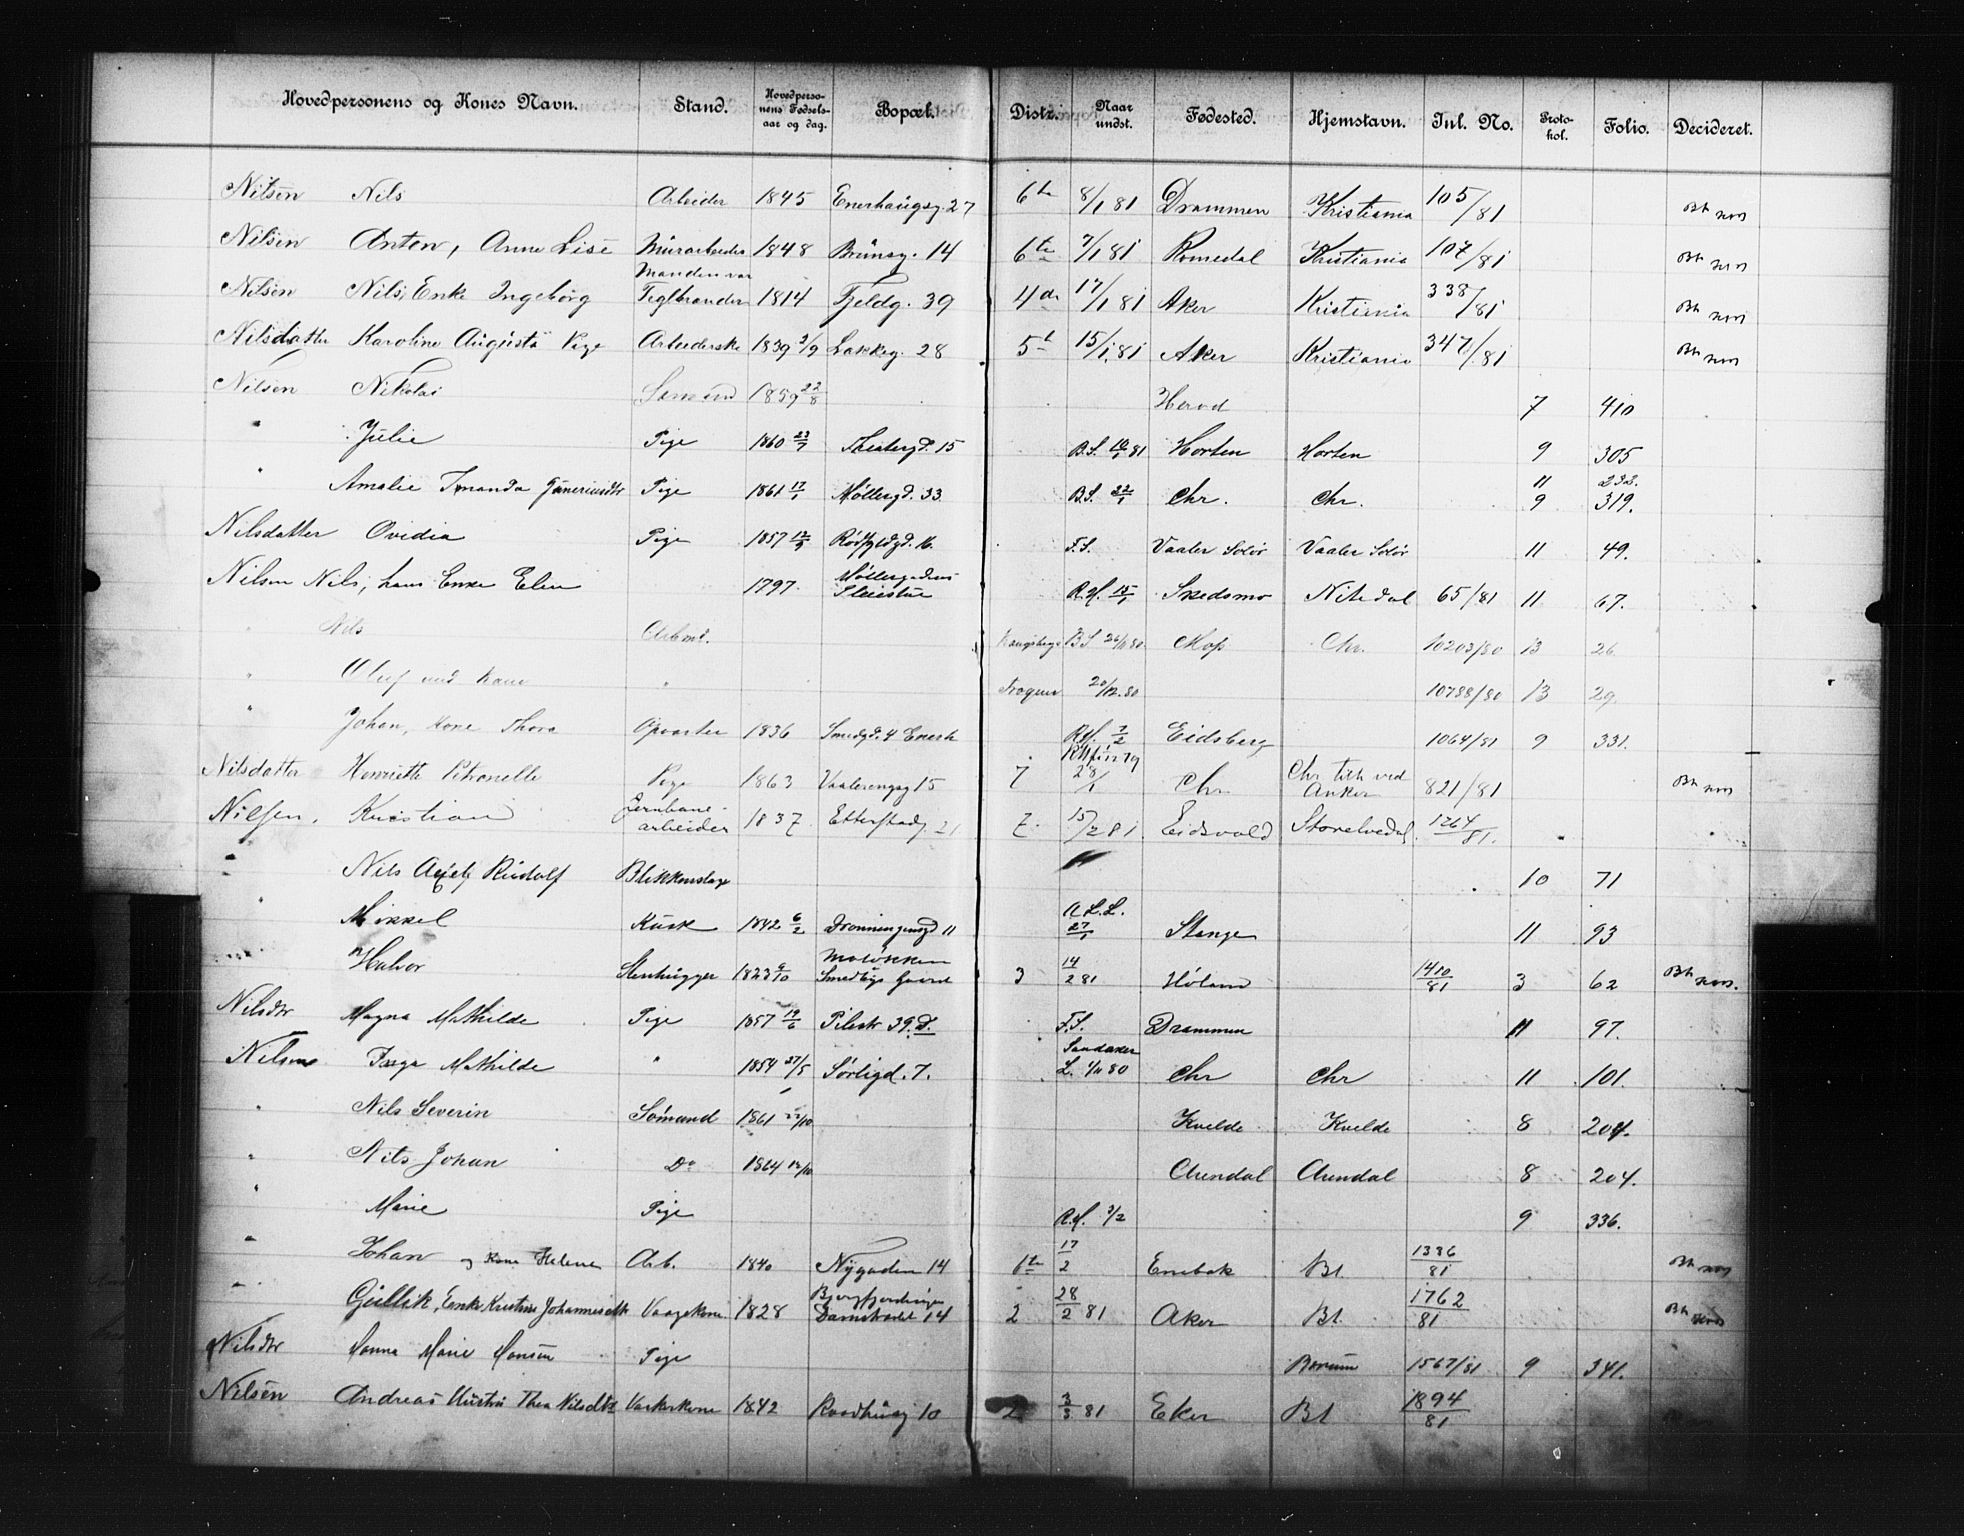 Hovedpersonens og Kones Navn. Stand. Hovedperso-nens Fødsels-aar og dag. Bopæl. Distr. Naar undst. Fødested. Hjemstavn. Inl. No. Proto-kol. Folio. Decideret.
Nilsen Nils Arbeider 1845 Enerhaugsg. 27 6te 8/1 81 Drammen Kristiania 105/81
Nilsen Anton, Anne Lise Murarbeider 1848 Brunsg. 14 6te 7/1 81 Romedal Kristiania 107/81
Nilsen Nils, Enke Ingeborg Manden var Teglbrænder 1814 Fjeldg. 39 4de 17/1 81 Aker Kristiania 338/81
Nilsdatter Karoline Augusta Pige Arbeiderske 1839 2/9 Lakkeg. 28 5t 15/1 81 Aker Kristiania 347/81
Nilsen Nikolai Sømand 1859 22/8 7 410
" Julie Pige 1860 23/7 Theatergd. 15 B.S. 10/1 81 Horten Horten 9 305
" Amalie Amanda Pige 1861 17/1 Møllergd. 33 B.S. 22/1 Chr. Chr. 11 232. 9 319.
Nilsdatter Ovidia Pige 1857 12/9 Rødfyldgd. 16. F.S. Vaaler Solør Vaaler Solør 11 49.
Nilsen Nils, hans Enke Elen 1797. Møllergadens Pleiestue R.f. 15/1 Skedsmo Nitedal 65/81 11 67.
Nils Arbmd. B.S. 26/11 80. Moss Chr. 10203/80 13 26
" Oluf med Kone " Frogner 20/12. 80 10788/80 13 29.
" Johan, Kone Thora Opvarter 1836 Smedgd. 4 Enerh R.f. 7/2 Eidsberg 1064/81 9 331.
Nilsdatter Henriette Petronelle Pige 1863 Vaalerengsg 15 7 28/1 Chr. Chr tilh ved Anker 821/81
Nilsen. Kristian Jernbane-arbeider 1837 Etterstadg 21 7. 15/2 81 Eidsvold Storelvedal 1264/81.
" Nils Rudolf Blikkenslag 10 71
" Mikkel Kusk 1842 6/2 Dronningensgd 11 27/1 Stange 11 93
Halvor Stenhugger 1823 9/10 Smedbys Gaard 3 14/2 81 Høland 1410/81 3 62
Nilsdtr Magna Mathilde Pige 1857 19/6 Pilestr 39. D. F.S. Drammen 11 97.
Nilsen Inga Mathilde " 1854 27/5 Sørligd. 7. Sandaker L. 1/11 80 Chr Chr 11 101.
" Nils Severin Sømand 1861 22/10 Kvelde Kvelde 8 204.
" Nils Johan Do 1864 12/10 Arendal Arendal 8 204.
" Marie Pige R.f. 3/2 9 336.
" Johan og Kone Helene Arb. 1840 Nygaden 14 6te 17/2 Enebak Bl. 1386/81
" Gullik, Enke Kristine Johannesdtr Vaagekone 1828 Bjergfjerdingen Damstrædet 14 2 28/2 81 Aker Bl. 1762/81
Nilsdtr Hanna Marie Hansen Pige Bærum 1567/81 9 341.
Nilsen Andreas Hustru Thea Nilsdtr Vaskerkone 1842 Raadhusg 10 2 3/3 81 Eker Bl 1894/81